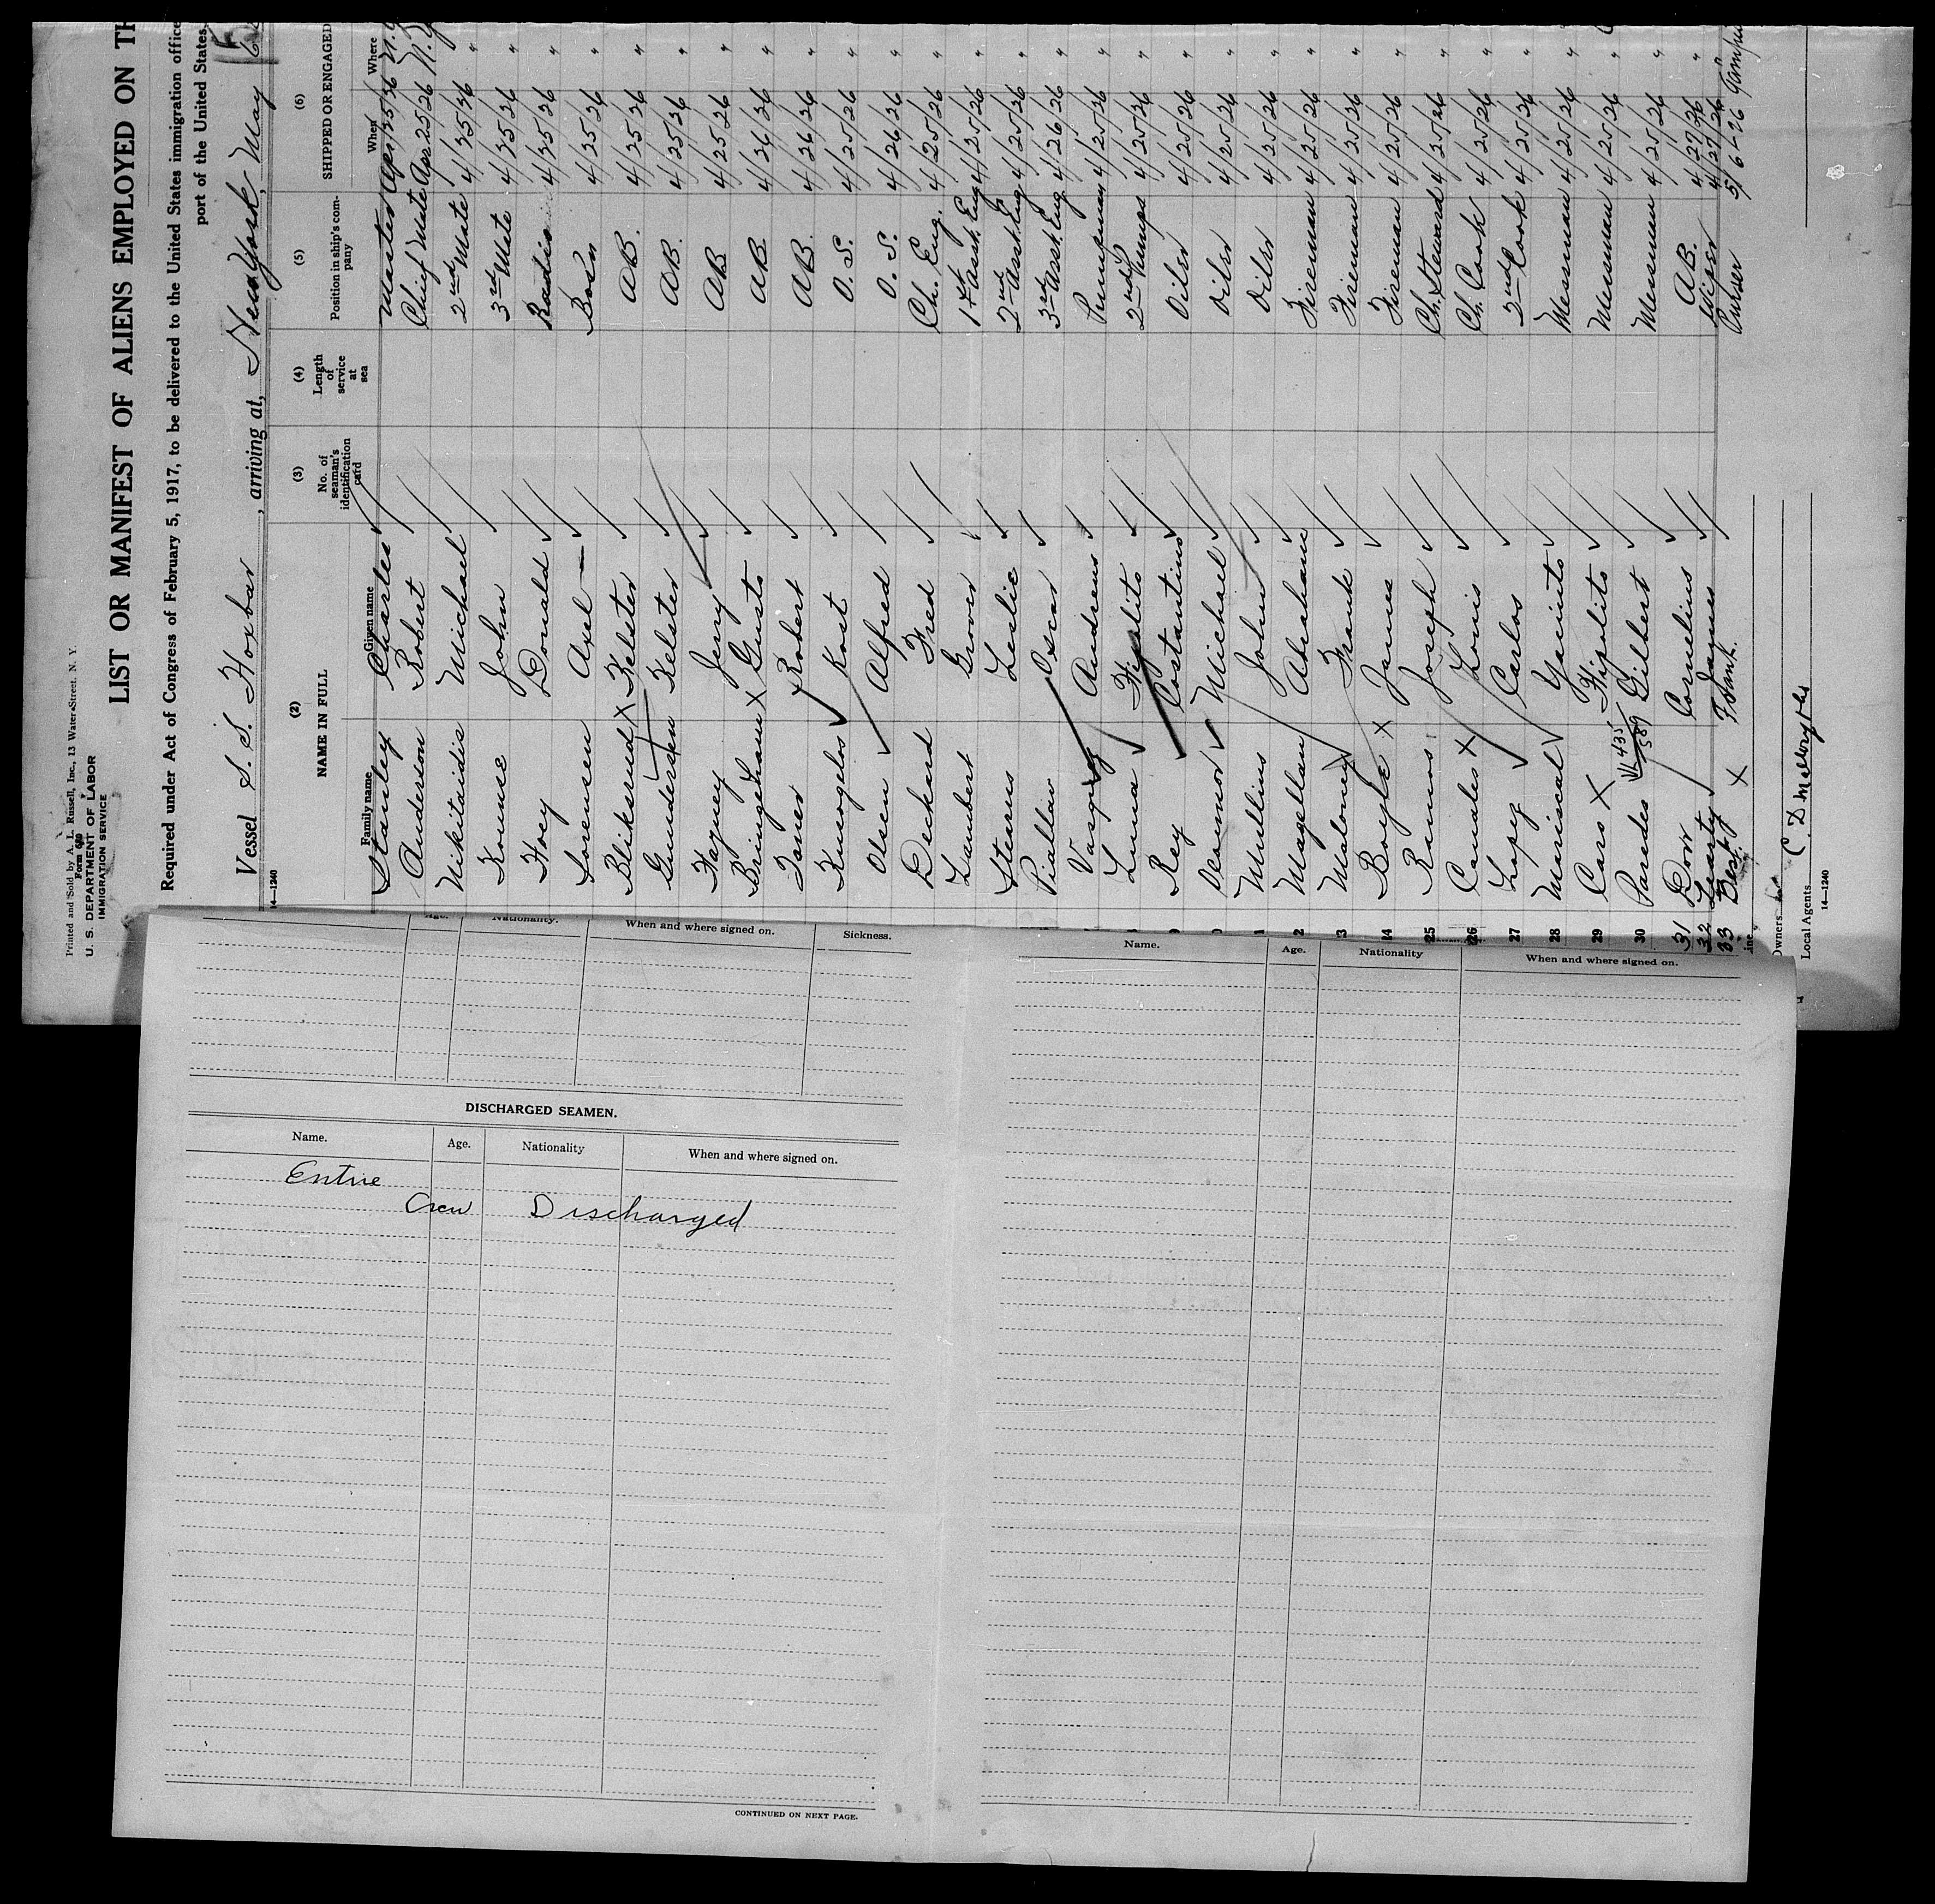 Printed and Sold by A. L. Russell, Inc., 13 Water Street. N. Y.
Form 680
U. S. DEPARTMENT OF LABOR
IMMIGRATION SERVICE
LIST OR MANIFEST OF ALIENS EMPLOYED ON TH
Required under Act of Congress of February 5, 1917, to be delivered to the United States immigration office
port of the United States.
Vessel S. S. Hoxbar, arriving at, New York, May 6
14—1240
(2) (3) (4) (5) (6)
NAME IN FULL No. of seaman's identification card Length of service at sea Position in ship's company SHIPPED OR ENGAGED
Family name Given name When Where
Stanley Charles Master Apr 25/26 N.Y
Anderson Robert Chief Mate Apr 25/26 N.Y
Nikitaidis Michael 2nd Mate 4/25/26 "
Kounse John 3rd Mate 4/25/26 "
Hoey Donald Radio 4/25/26 "
Sorensen Axel Bosn 4/25/26 "
Bliksrud X Kelster AB. 4/25/26 "
Gundersen Kelster AB. 4/25/26 "
Haguey Jerry AB 4/25/26 "
Bringhauu X Gusto AB 4/26/26 "
Robert AB. 4/26/26 "
Kost O. S. 4/25/26 "
Olsen Alfred O. S. 4/26/26 "
Deckard Fred Ch. Eng. 4/25/26 "
Lambert Grover 1st Asst. Eng 4/25/26 "
Stearns Leslie 2nd Asst. Eng 4/25/26 "
Oscar 3rd Asst. Eng 4/26/26 "
Andreus Pumpman 4/25/26 "
Luna Hipolito 2nd Pumps 4/25/26 "
Rey Costantino Oiler 4/25/26 "
Michael Oiler 4/25/26 "
Mullins John Oiler 4/25/26 "
22 Magellan Abraham Fireman 4/25/26 "
23 Maloney Frank Fireman 4/25/26 "
24 Boyle X James Fireman 4/25/26 "
25 Ramos Joseph Ch. Steward 4/25/26 "
26 Candles X Louis Ch. Cook 4/25/26 "
27 Lopez Carlos 2nd Cook 4/25/26 "
28 Mariscal Yacinto Messman 4/25/26 "
29 Caro X Hipolito Messman 4/25/26 "
30 Paredes 435/589 Gilbert Messman 4/25/26 "
31 Dorr Cornelius AB. 4/27/26 "
32 Learty James Wiper 4/27/26
33 Best X Frank. Purser 5/6-26
Line
Owners
Local Agents
14—1240
Age. Nationality. When and where signed on. Sickness.
DISCHARGED SEAMEN.
Name. Age. Nationality When and where signed on.
Entire
Crew Discharged
CONTINUED ON NEXT PAGE.
Name. Age. Nationality When and where signed on.